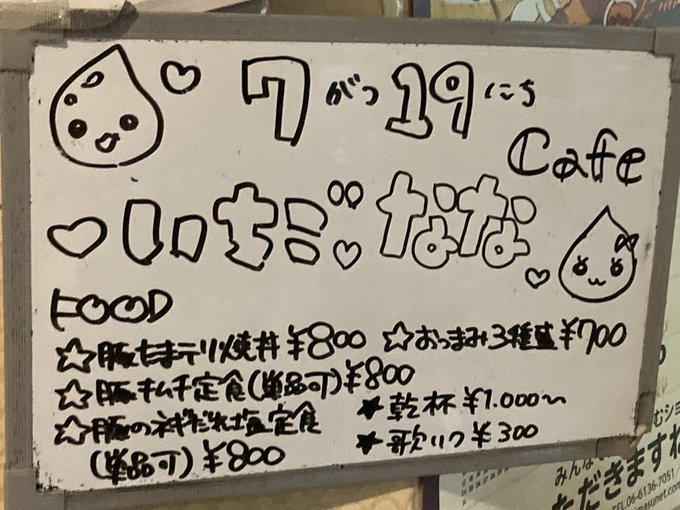 7がつ19にち
Cafe
いちごなな
FOOD
☆豚たまテリ焼丼 ¥800
☆おつまみ3種盛¥700
☆豚キムチ定食(単品可)¥800
☆豚のネギだれ塩定食
(単品可) ¥800
★乾杯 ¥1.000〜
★歌リク ¥300
みんな
むショ
ただきますね
TEL.06-6136-7051